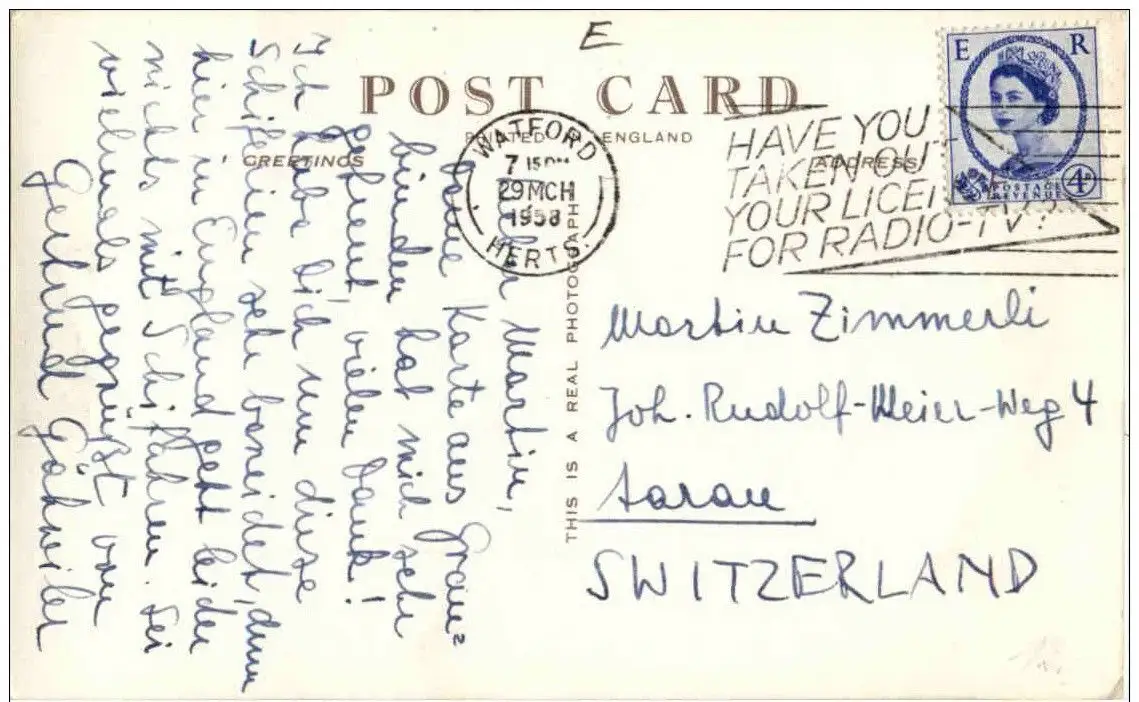 E
POST CARD
PRINTED ENGLAND
GREETINGS
ADDRESS
WATFORD
7 15 PM
29 MCH
1958
HERTS.
HAVE YOU
TAKEN OUT
YOUR LICEN
FOR RADIO-TV?
E R
POSTAGE
REVENUE
4D
THIS IS A REAL PHOTOGRAPH
Lieber Martin,
Deine Karte aus Grau=
bünden hat mich sehr
gefreut, vielen Dank!
Ich habe Dich um diese
Schiferien sehr beneidet, denn
hier in England geht leider
nichts mit Schifahren. Sei
vielmals gegrüßt von
Gertrud Gähwiler
Martin Zimmerli
Joh. Rudolf-Meier-Weg 4
Aarau
SWITZERLAND